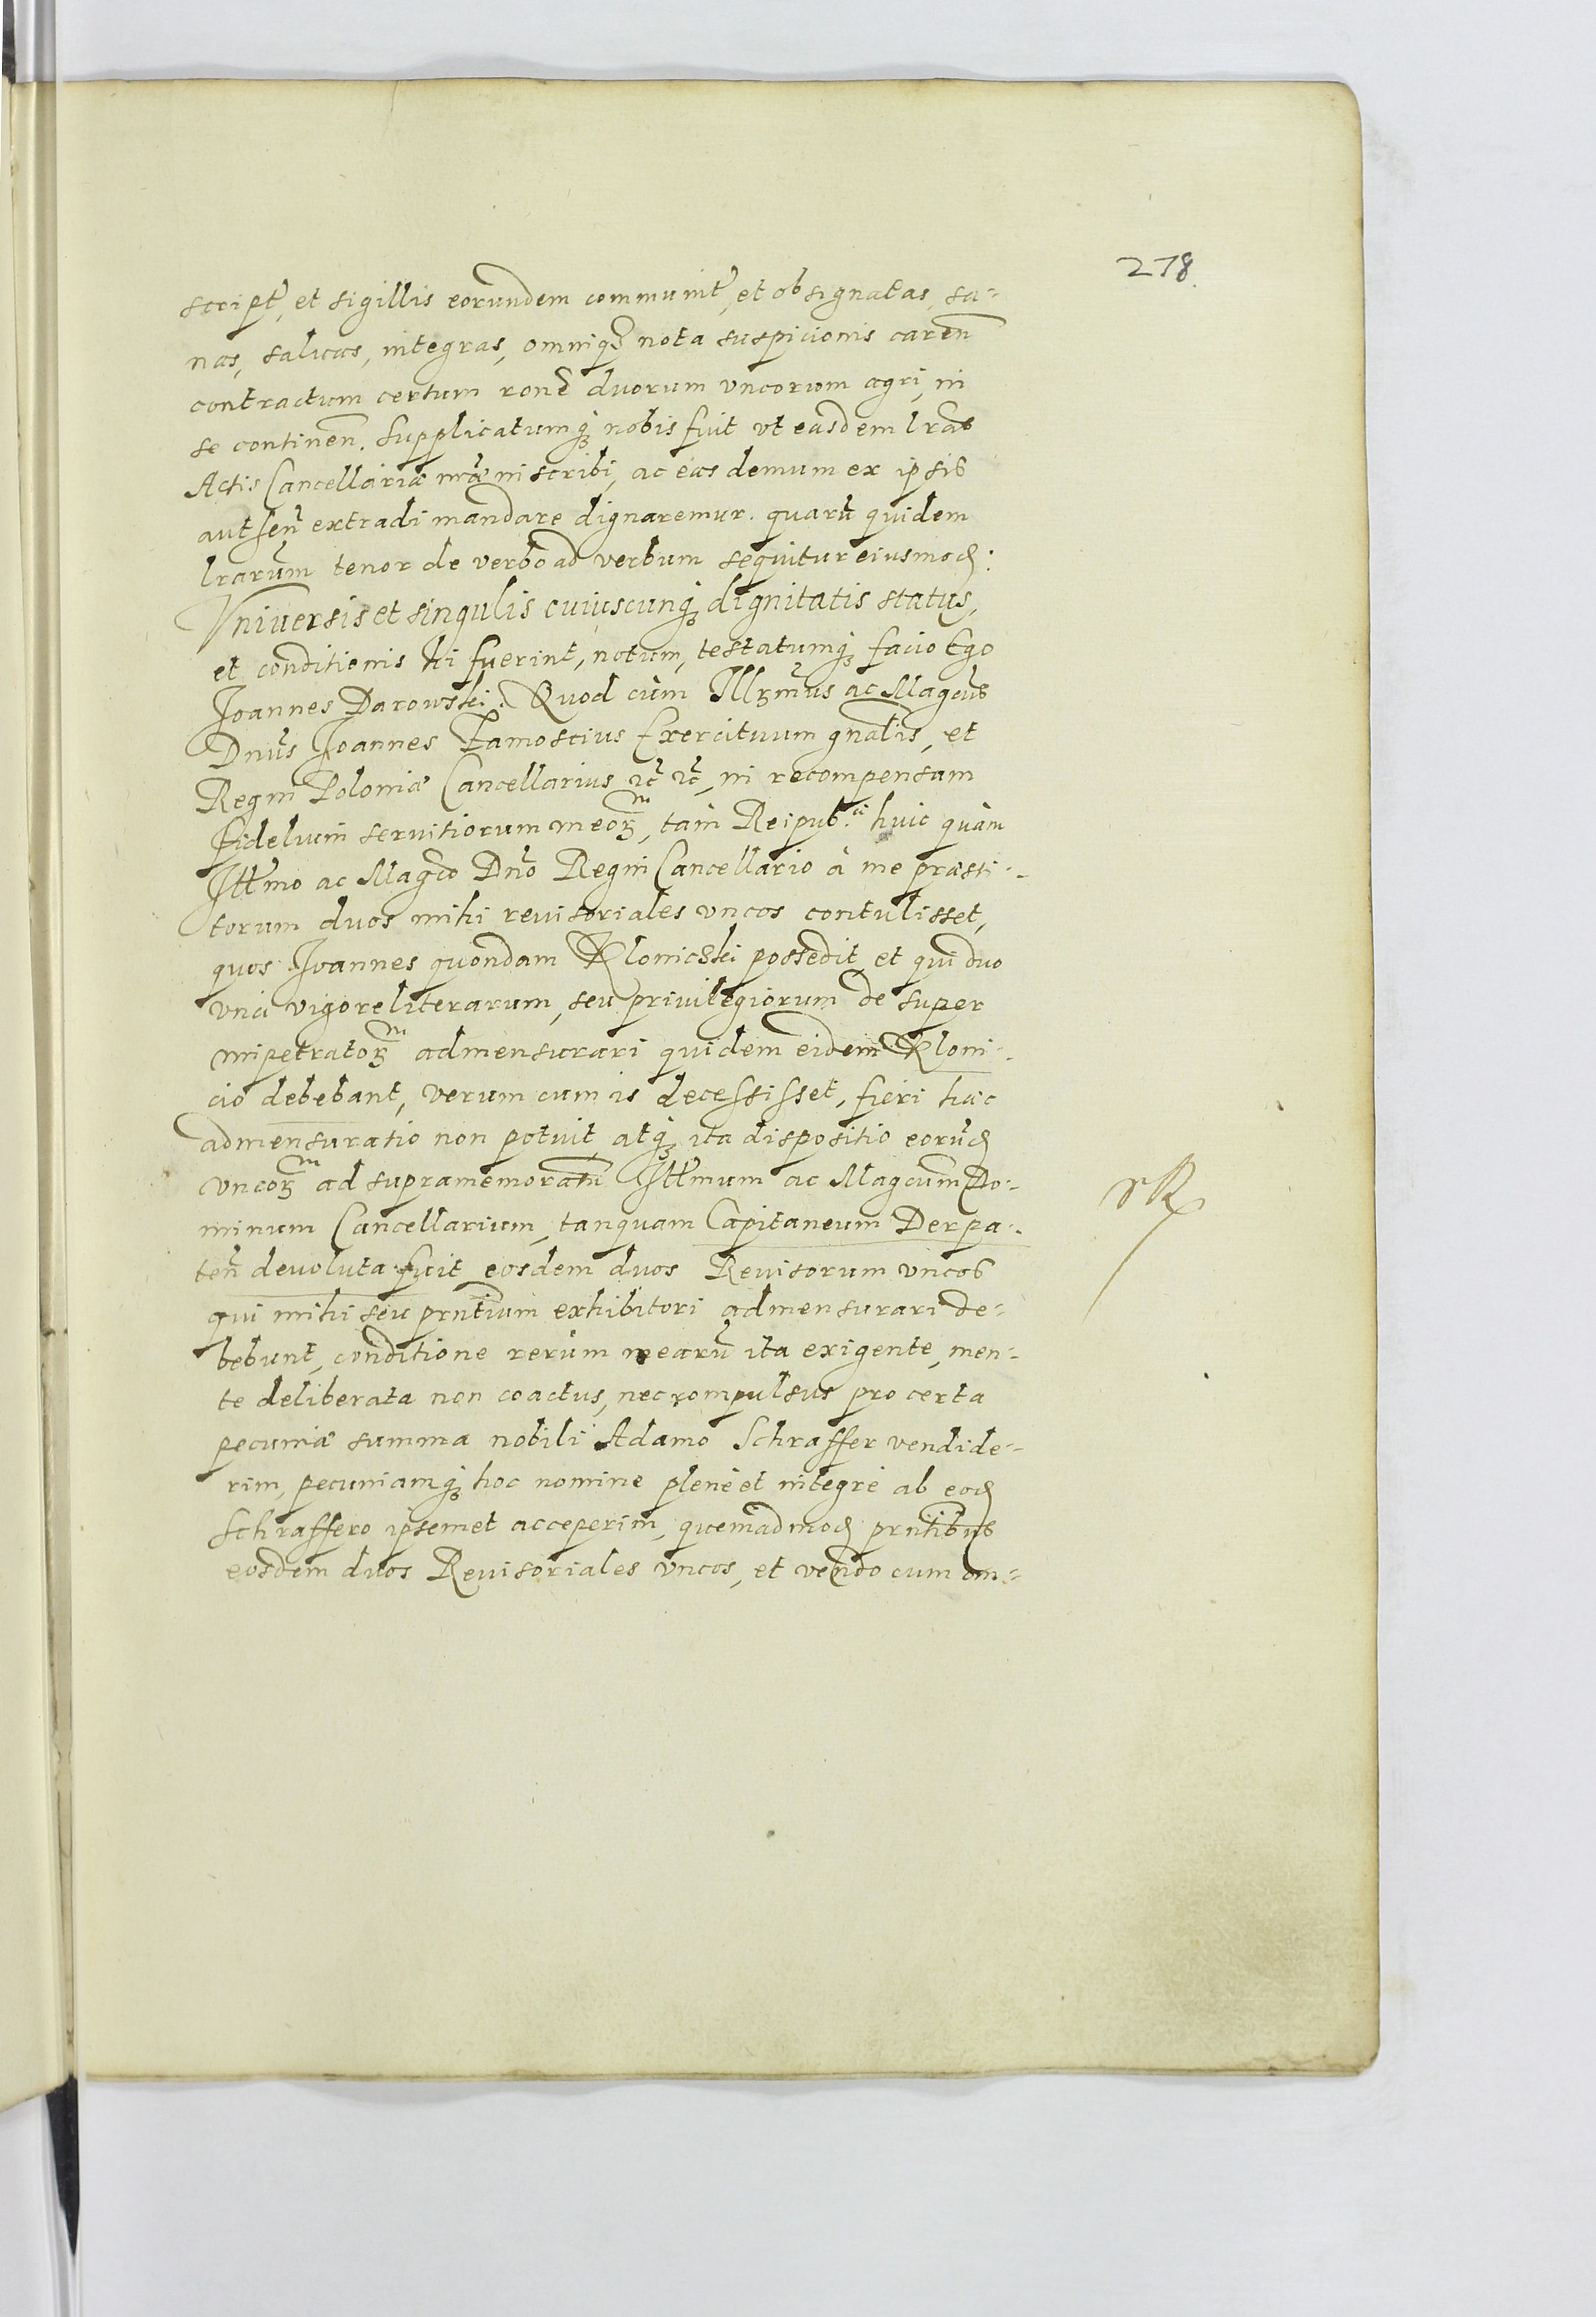 278.
script, et sigillis eorundem communit, et obsignatas, sa-
nas, saluas, integras, omniq3 nota suspicionis caren
contractum certum rone duorum vncorum agri, in
se continen. Supplicatumq3 nobis fuit vt easdem lras
Actis Cancellariæ nræ inscribi, ac eas demum ex ipsis
autsen extradi mandare dignaremur. quarũ quidem
lrarum tenor de verbo ad verbum sequitur eiusmod:
Vniuersis et singulis cuiuscunq3 dignitatis status,
et conditionis hi fuerint, notum, testatumq3 facio Ego
Joannes Darowski. Quod cùm Illrmus ac Magcus
Dnus Joannes Zamoscius Exercituum gnalis, et
Regni Poloniæ Cancellarius rc rc, in recompensam
fidelium seruitiorum meorm, tàm Reipub.ci huic quàm
Illmo ac Magco Dno Regni Cancellario à me præsti-
torum duos mihi reuisoriales vncos contulisset,
quos Joannes quondam Klonicski possedit, et qui duo
vnci vigore literarum, seu priuilegiorum de super
impetratorm admensurari quidem eidem Kloni-
cio debebant, verum cum is decessisset, fieri hæc
admensuratio non potuit, atq3 ita dispositio eorũd
vncorm ad supramemoratũ Illmum ac Magcum Do-
minum Cancellarium, tanquam Capitaneum Derpa-
ten deuoluta fuit eosdem duos Reuisorum vncos
qui mihi seu prntium exhibitori admensurari de-
bebunt, conditione rerum mearũ ita exigente, men-
te deliberata non coactus, nec compulsus pro certa
pecuniæ summa nobili Adamo Schraffer vendide-
rim, pecuniamq3 hoc nomine plenè et integrè ab eod
Schraffero ipsemet acceperim, quemadmod prntibus
eosdem duos Reuisoriales vncos, et vendo cum om-